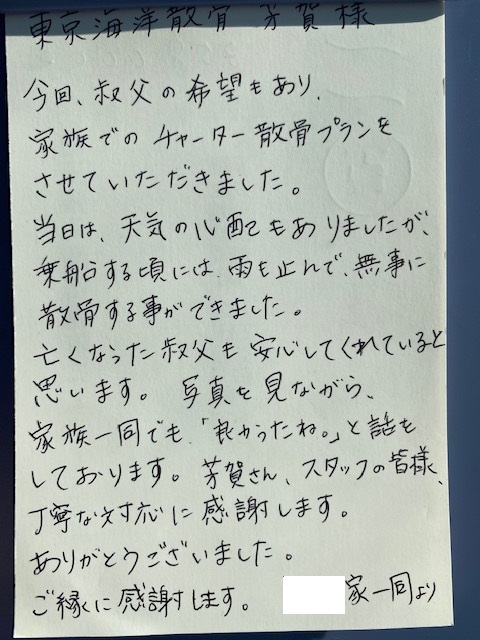 東京海洋散骨 芳賀様
今回、叔父の希望もあり、
家族でのチャーター散骨プランを
させていただきました。
当日は、天気の心配もありましたが、
乗船する頃には雨も止んで、無事に
散骨する事ができました。
亡くなった叔父も安心してくれていると
思います。 写真を見ながら、
家族一同でも「良かったね。」と話も
しております。芳賀さん、スタッフの皆様、
丁寧な対応に感謝します。
ありがとうございました。
ご縁に感謝します。 家一同より